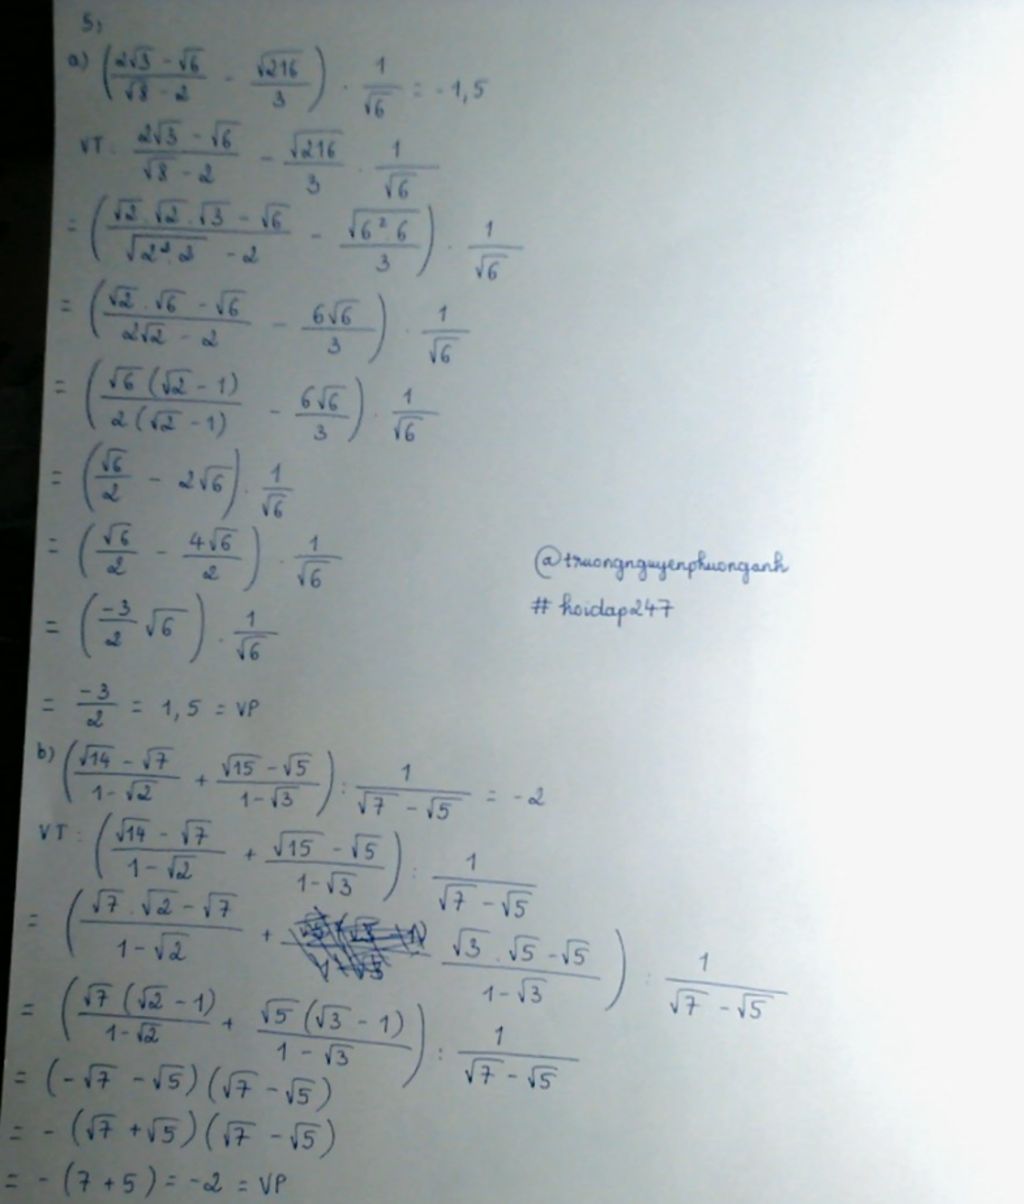 5,
a) (2√3 - √6 / √8 - 2 - √216 / 3) . 1/√6 = -1,5
VT: 2√3 - √6 / √8 - 2 - √216 / 3 . 1/√6
= (√2 . √2 . √3 - √6 / √2².2 - 2 - √6².6 / 3) . 1/√6
= (√2 . √6 - √6 / 2√2 - 2 - 6√6 / 3) . 1/√6
= (√6 (√2 - 1) / 2 (√2 - 1) - 6√6 / 3) . 1/√6
= (√6/2 - 2√6) . 1/√6
= (√6/2 - 4√6/2) . 1/√6
@truongnguyenphuonganh
# hoidap247
= (-3/2 √6) . 1/√6
= -3/2 = 1,5 = VP
b) (√14 - √7 / 1 - √2 + √15 - √5 / 1 - √3) : 1 / √7 - √5 = -2
VT: (√14 - √7 / 1 - √2 + √15 - √5 / 1 - √3) : 1 / √7 - √5
= (√7 . √2 - √7 / 1 - √2 + √3 . √5 - √5 / 1 - √3) : 1 / √7 - √5
= (√7 (√2 - 1) / 1 - √2 + √5 (√3 - 1) / 1 - √3) : 1 / √7 - √5
= (-√7 - √5) (√7 - √5)
= - (√7 + √5) (√7 - √5)
= - (7 + 5) = -2 = VP